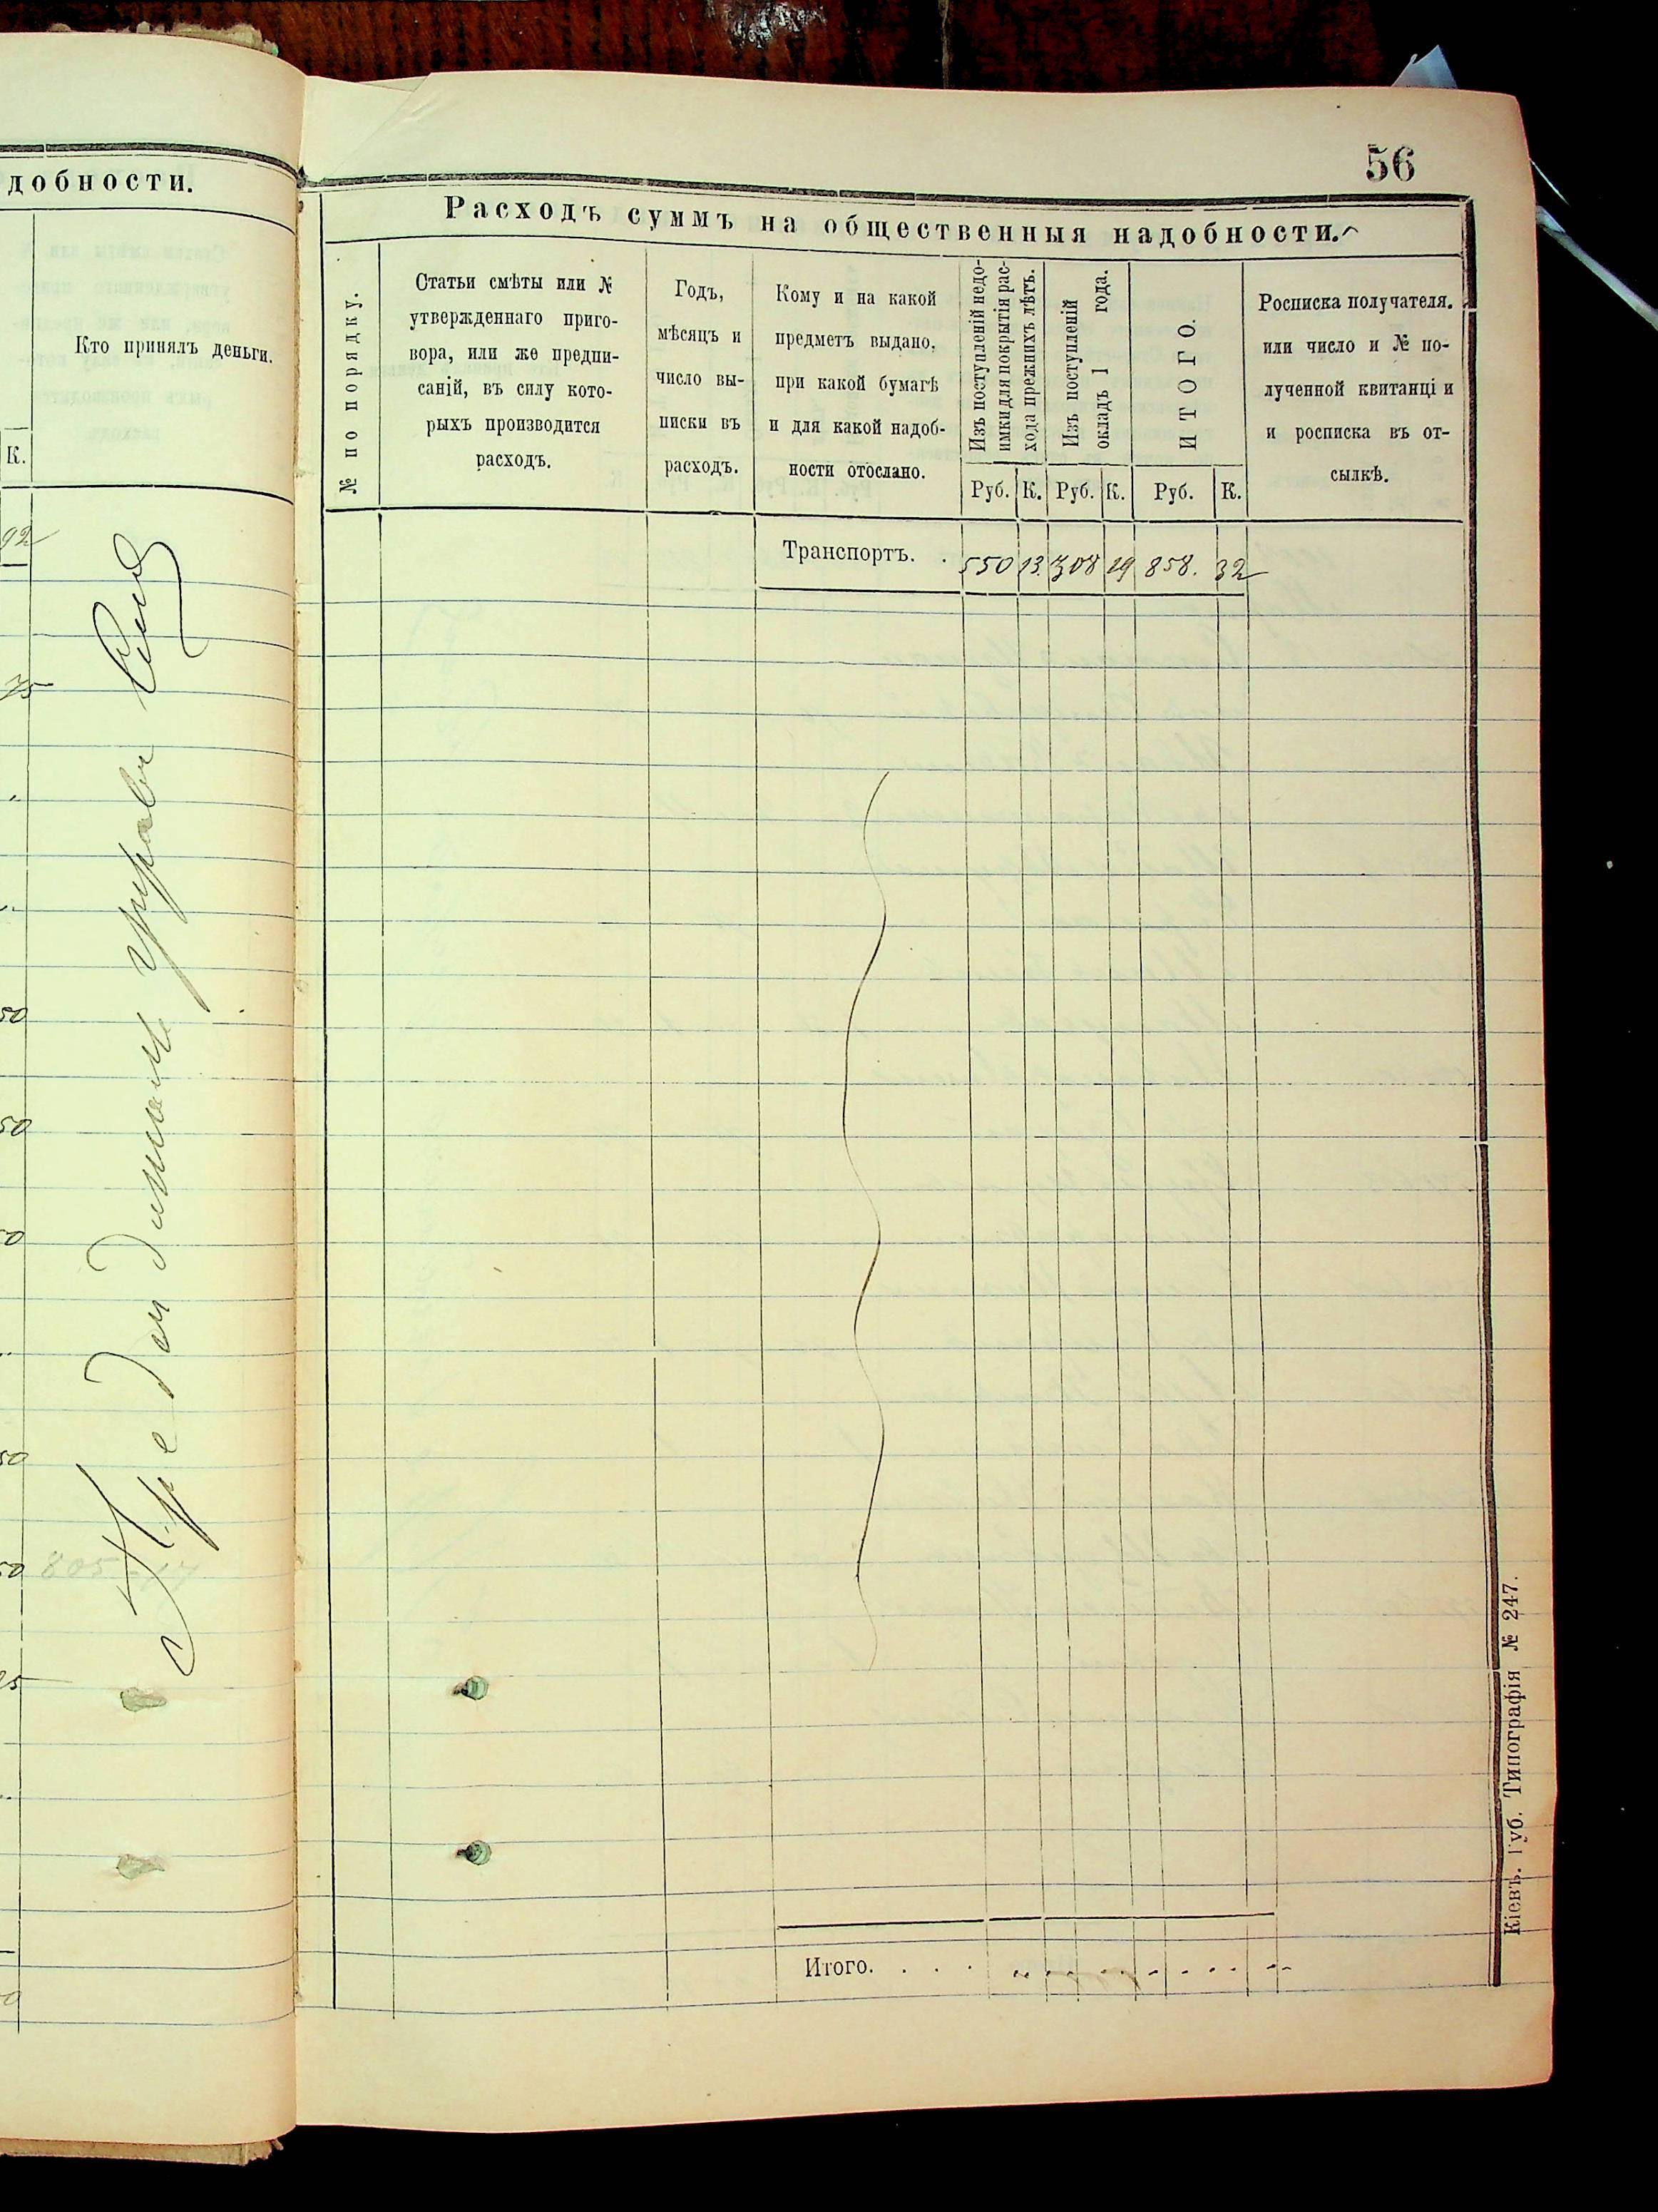 добности.
Кто принялъ деньги.
К.
92
75
50
50
50
50
805
56
Расходъ суммъ на общественныя надобности.
№ по порядку.
Статьи смѣты или №
утвержденнаго приго-
вора, или же предпи-
саній, въ силу кото-
рыхъ производится
расходъ.
Годъ,
мѣсяцъ и
число вы-
писки въ
расходъ.
Кому и на какой
предметъ выдано,
при какой бумагѣ
и для какой надоб-
ности отослано.
Изъ поступленій недо-
имки для покрытія рас-
хода прежнихъ лѣтъ.
Изъ поступленій
окладъ 1 года.
ИТОГО.
Росписка получателя.
или число и № по-
лученной квитанці и
и росписка въ от-
сылкѣ.
Руб. К. Руб. К. Руб. К.
Транспортъ. . 550 13. 308 19 858. 32
Итого. . . .
Кіевъ. Губ. Типографія № 247.